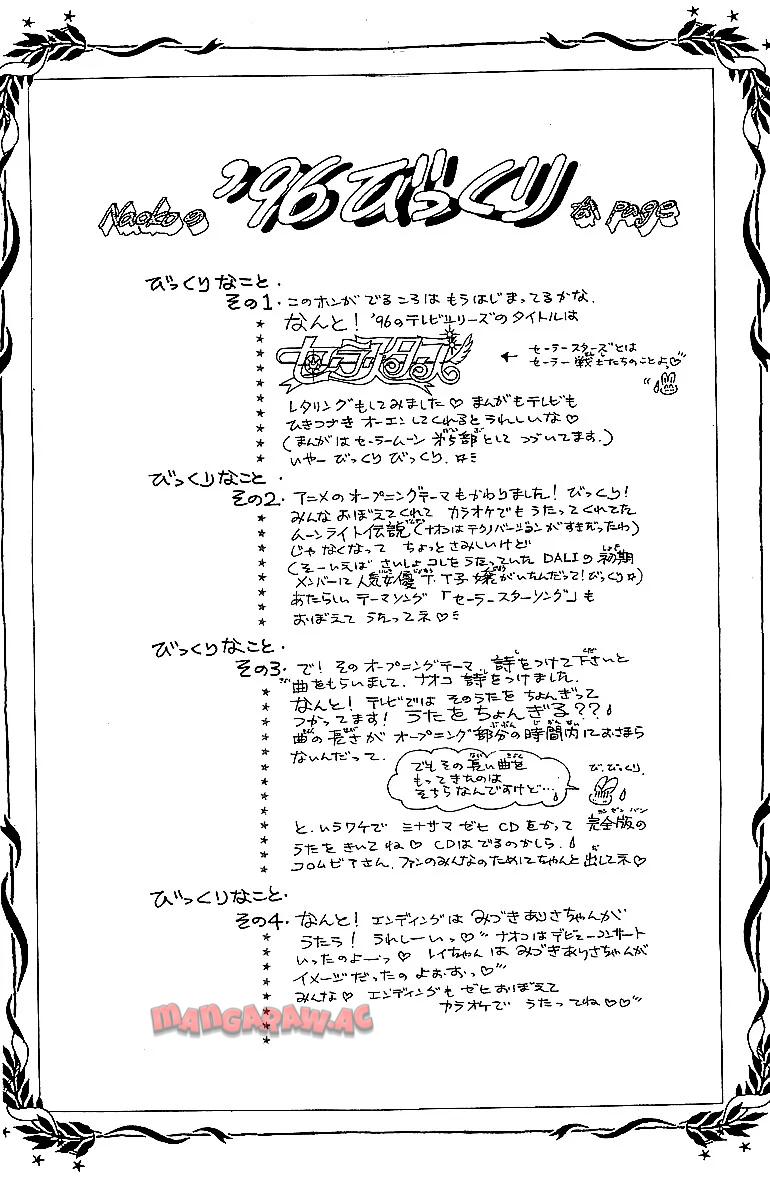 Naokoの '96びっくりな page
びっくりなこと.
その1. このホンがでるころは もうはじまってるかな.
なんと! '96のテレビシリーズのタイトルは
セーラースターズ
← セーラースターズとは
セーラー戦士たちのことよっ♡〃
レタリングもしてみました♡ まんがもテレビも
ひきつづき オーエンしてくれると うれしいな♡
(まんがは セーラームーン 第5部として つづいてます.)
いやー びっくり びっくり. ☆ミ
びっくりなこと.
その2. アニメのオープニングテーマもかわりました! びっくり!
みんな おぼえてくれて カラオケでも うたってくれてた
ムーンライト伝説(ナオコはテクノバージョンがすきだったわ)
じゃ なくなって ちょっと さみしいけど
(そーいえば さいしょ コレをうたっていた DALIの初期
メンバーに人気女優T.T子嬢がいたんだって! びっくり☆)
あたらしい テーマソング 「セーラースターソング」も
おぼえて うたってネ♡ミ
びっくりなこと.
その3. で! そのオープニングテーマ. 詩をつけて下さいと
曲をもらいまして. ナオコ 詩をつけました.
なんと! テレビでは そのうたを ちょんぎって
つかってます! うたを ちょんぎる??
曲の長さが オープニング部分の時間内におさまら
ないんだって.
でもその長い曲を
もってきたのは
そちらなんですけど…
び.びっくり.
と.いうワケで ミナサマ ゼヒ CDをかって 完全版の
うたを きいてね♡ CDは でるのかしら.
コロムビアさん. ファンのみんなのために ちゃんと出してネ♡
びっくりなこと.
その4. なんと! エンディングは みづきありさちゃんが
うたう! うれしーいっ♡〃 ナオコはデビューコンサート
いったのよーっ♡ レイちゃんは みづきありさちゃんが
イメージだったの よぉぉっ♡〃
みんな♡ エンディングも ゼヒ おぼえて
カラオケで うたってね♡♡〃
MANGARAW.AC